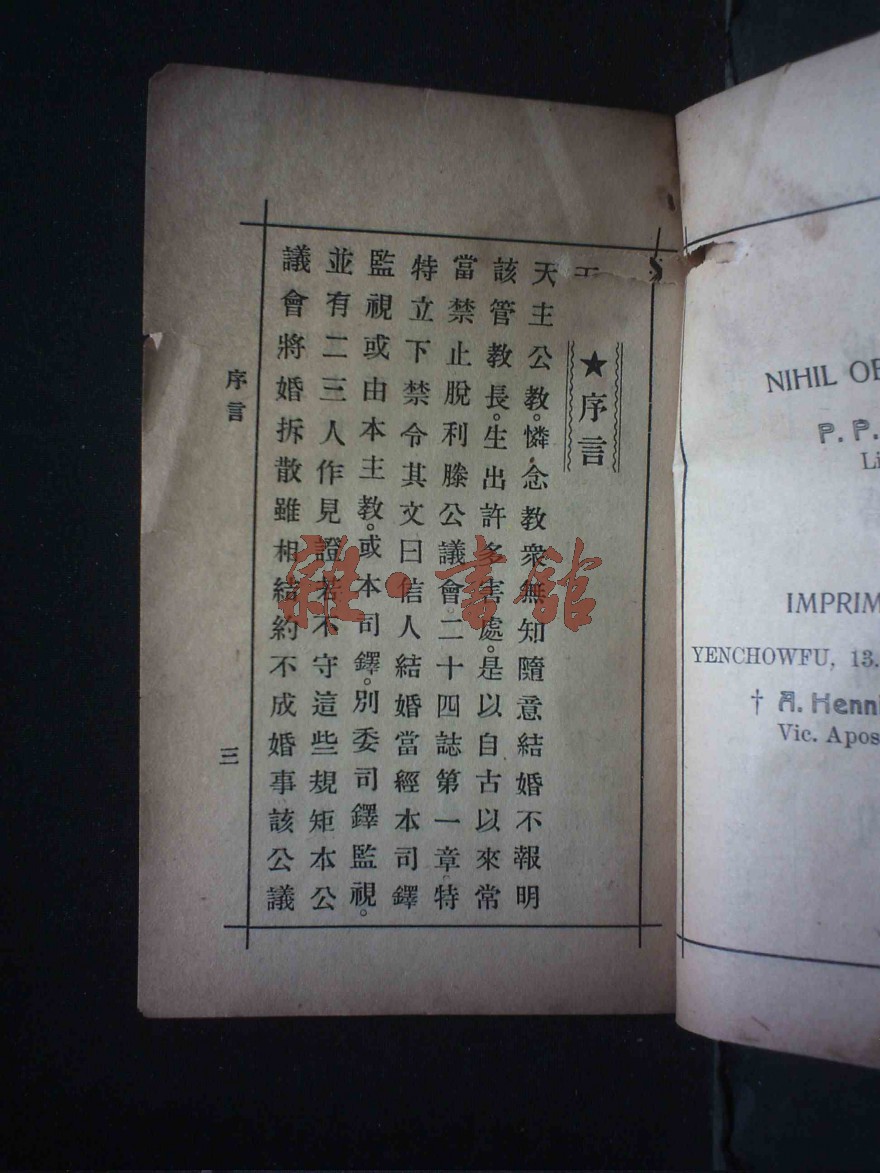 ★序言
天主公教。憐念教衆無知隨意結婚不報明
該管教長。生出許多害處。是以自古以來常
當禁止脫利滕公議會。二十四誌第一章。特
特立下禁令其文曰信人結婚當經本司鐸
監視或由本主教。或本司鐸。別委司鐸監視。
並有二三人作見證若不守這些規矩本公
議會將婚拆散雖相結約不成婚事該公議
序言
三
NIHIL OB
P. P.
Li
IMPRIM
YENCHOWFU, 13.
† A. Henni
Vic. Apos
雜·書館